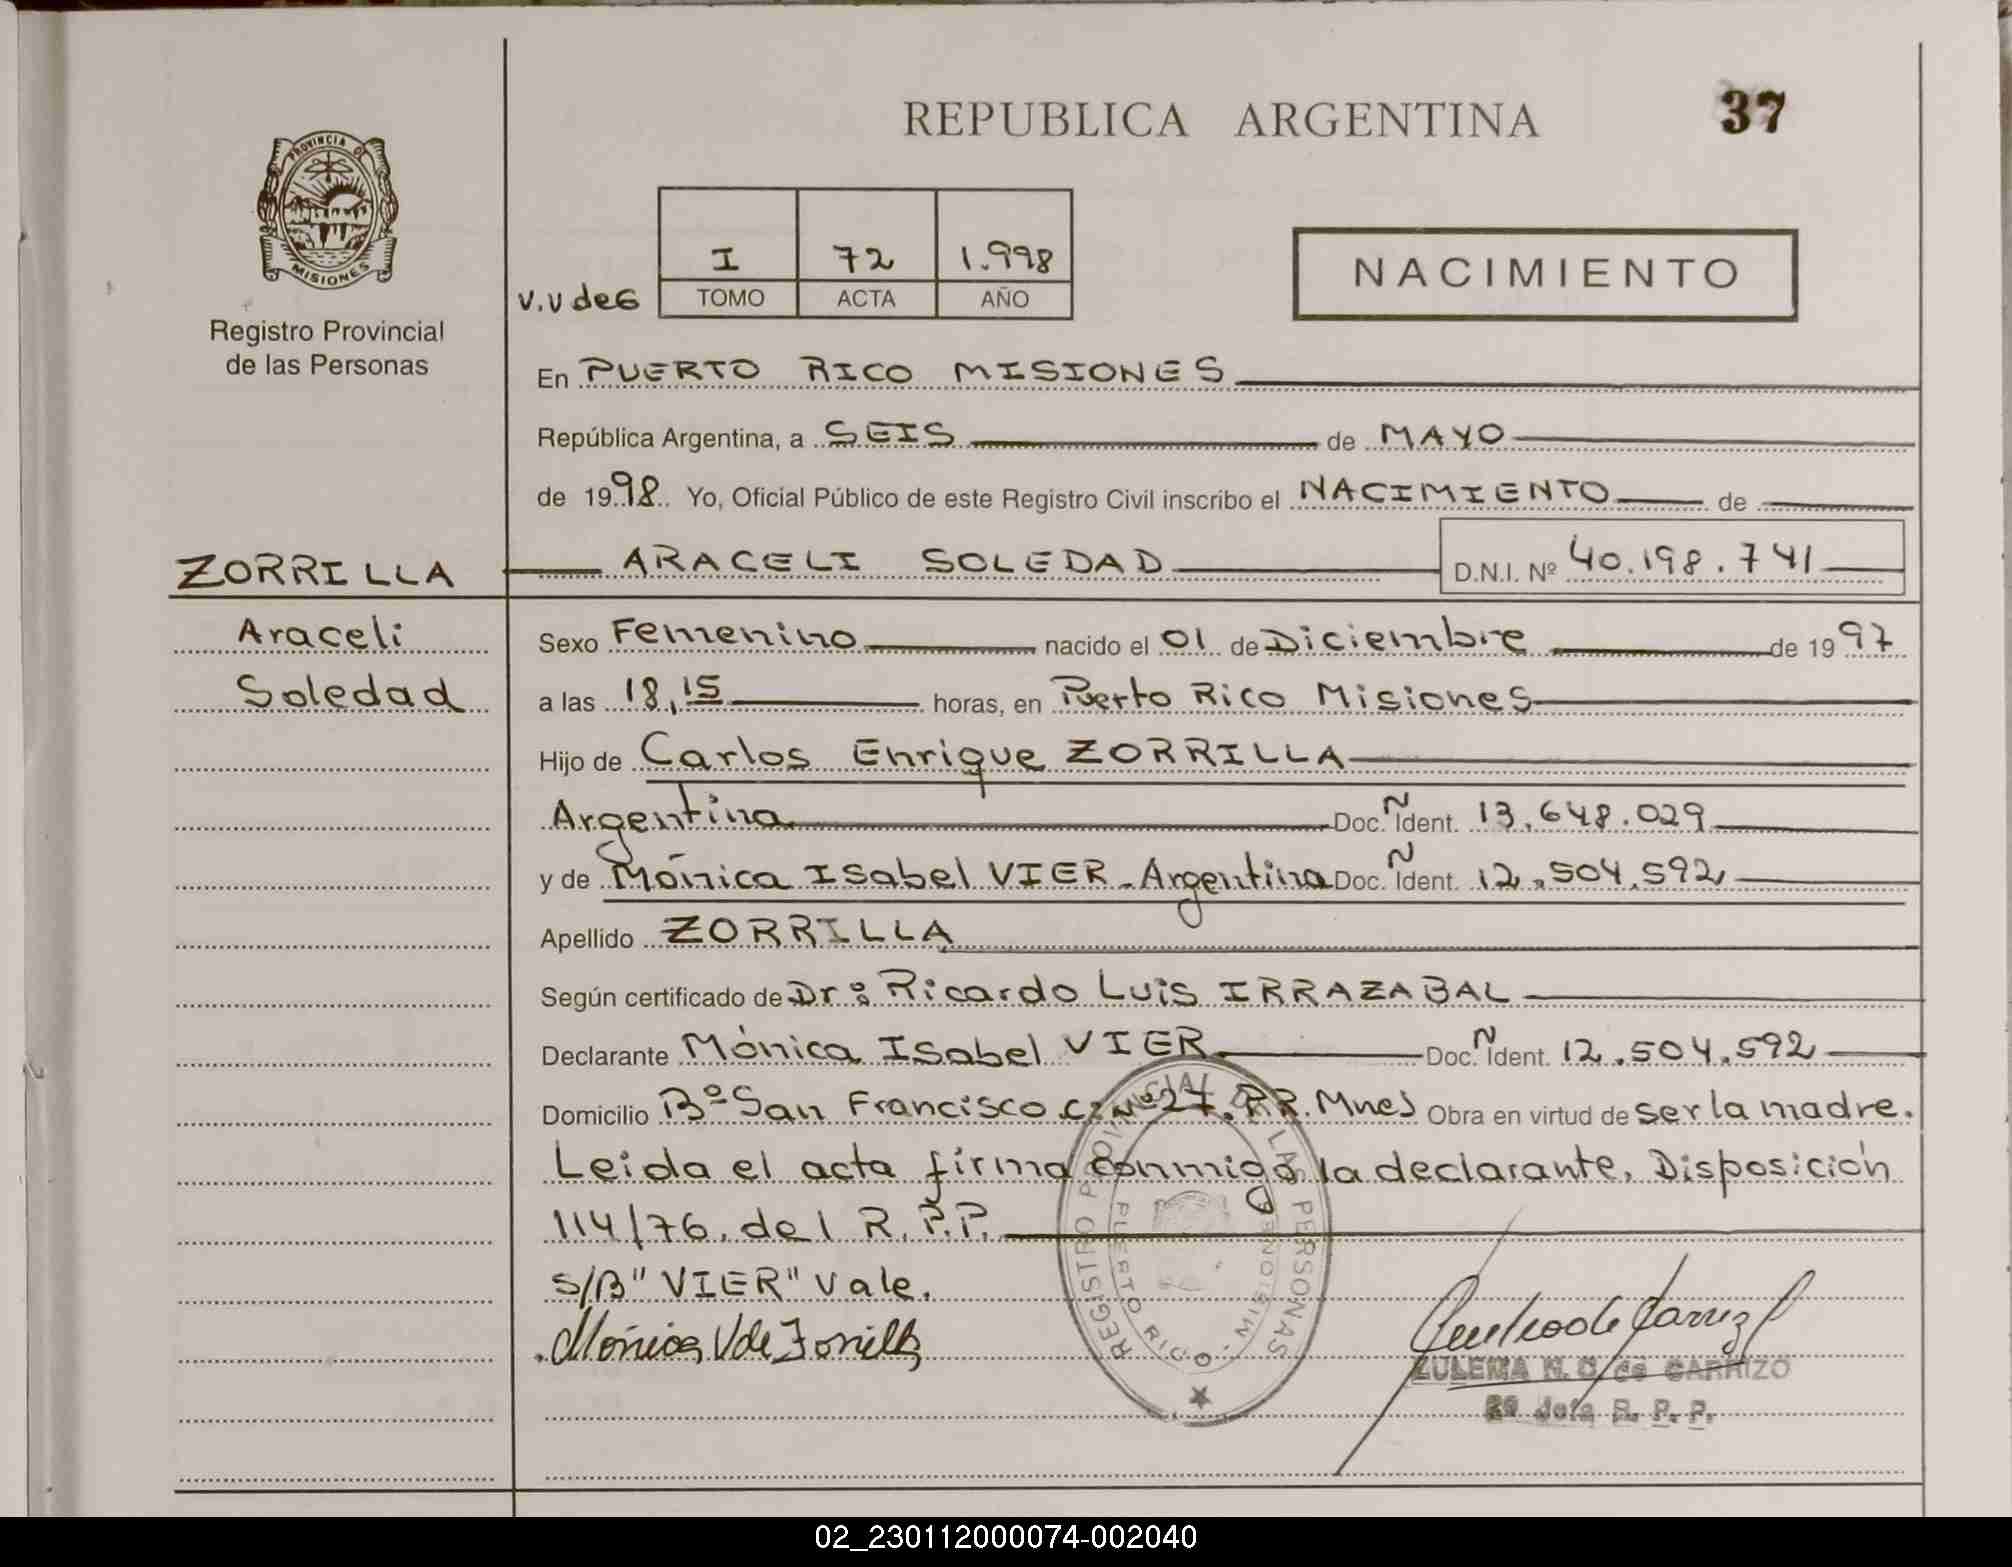 REPUBLICA ARGENTINA 37
PROVINCIA DE
MISIONES
Registro Provincial
de las Personas
v.v de 6
I 72 1.998
TOMO ACTA AÑO
NACIMIENTO
En PUERTO RICO MISIONES
República Argentina, a SEIS de MAYO
de 1998 Yo, Oficial Público de este Registro Civil inscribo el NACIMIENTO de
ZORRILLA
ARACELI SOLEDAD D.N.I. Nº 40.198.741
Araceli
Soledad
Sexo Femenino nacido el 01 de Diciembre de 1997
a las 18,15 horas, en Puerto Rico Misiones
Hijo de Carlos Enrique ZORRILLA
Argentina Doc. Ñ Ident. 13.648.029
y de Mónica Isabel VIER - Argentina Doc. Ñ Ident. 12.504.592
Apellido ZORRILLA
Según certificado de Dr: Ricardo Luis IRRAZABAL
Declarante Mónica Isabel VIER Doc. Ñ Ident. 12.504.592
Domicilio Bº San Francisco Cz Nº 27. P.R. Mnes Obra en virtud de ser la madre.
Leida el acta firma conmigo la declarante. Disposición
114/76. del R.P.P.
S/B "VIER" Vale.
Mónica V de Zorrilla
REGISTRO PROVINCIAL DE LAS PERSONAS
PUERTO RICO - MISIONES
ZULEMA N. C. de CARRIZO
2º Jefa R. P. P.
02_230112000074-002040